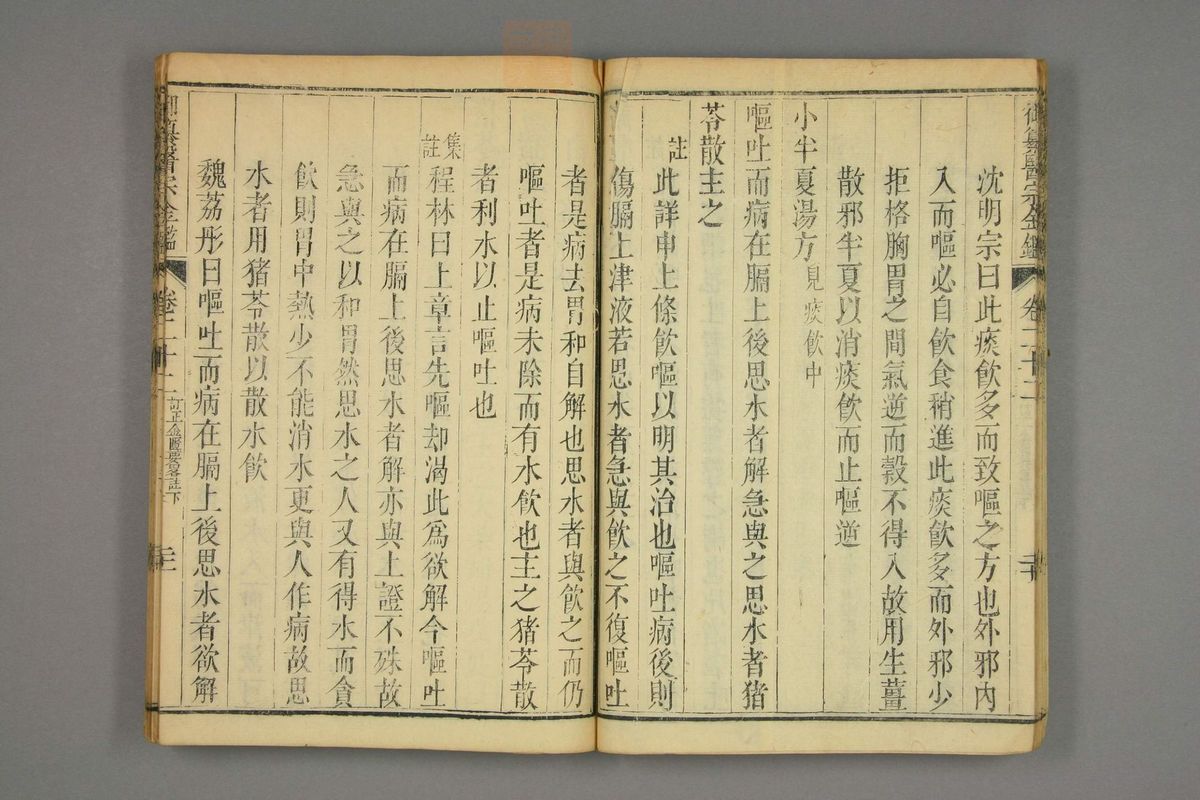 御纂醫宗金鑑 卷二十二
沈明宗曰此痰飲多而致嘔之方也外邪內
入而嘔必自飲食稍進此痰飲多而外邪少
拒格胸胃之間氣逆而穀不得入故用生薑
散邪半夏以消痰飲而止嘔逆
小半夏湯方見痰飲中
嘔吐而病在膈上後思水者解急與之思水者猪
苓散主之
註
此詳申上條飲嘔以明其治也嘔吐病後則
傷膈上津液若思水者急與飲之不復嘔吐
者是病去胃和自解也思水者與飲之而仍
嘔吐者是病未除而有水飲也主之猪苓散
者利水以止嘔吐也
集註
程林曰上章言先嘔却渴此為欲解今嘔吐
而病在膈上後思水者解亦與上證不殊故
急與之以和胃然思水之人又有得水而貪
飲則胃中熱少不能消水更與人作病故思
水者用猪苓散以散水飲
魏荔彤曰嘔吐而病在膈上後思水者欲解
御纂醫宗金鑑 卷二十二 訂正金匱要畧註下